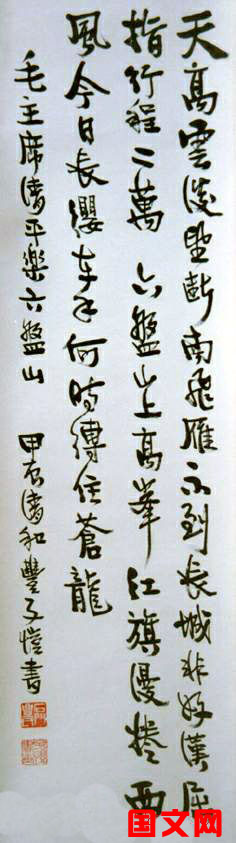 天高雲淡望斷南飛雁不到長城非好漢屈
指行程二萬 六盤山上高峯紅旗漫捲西
風今日長纓在手何時縛住蒼龍
毛主席清平樂六盤山 甲辰清和豐子愷書
国文网